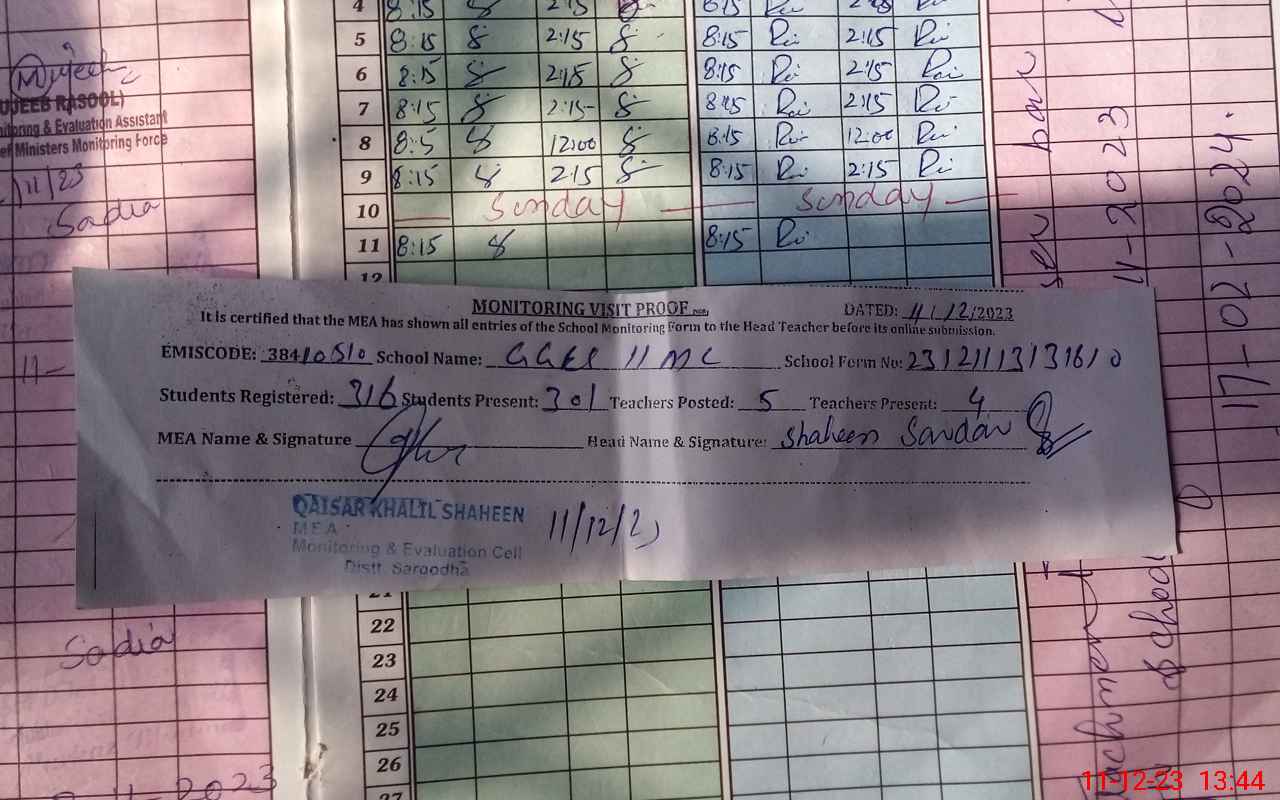 4 8:15 2:15 8:15 2:15
5 8:15 8 2:15 8 8:15 Rai 2:15 Rai
6 8:15 8 2:15 8 8:15 Rai 2:15 Rai
7 8:15 8 2:15 8 8:15 Rai 2:15 Rai
8 8:5 8 12:00 8 8:15 Rai 12:00 Rai
9 8:15 8 2:15 8 8:15 Rai 2:15 Rai
10 Sunday Sunday
11 8:15 8 8:15 Rai
12
UJEEB RASOOL)
nitoring & Evaluation Assistant
ef Ministers Monitoring Force
/11/23
Sadia
11-
MONITORING VISIT PROOF
DATED: 11/12/2023
It is certified that the MEA has shown all entries of the School Monitoring Form to the Head Teacher before its online submission.
EMISCODE: 38410510 School Name: GGES 11 MC School Form No:
Students Registered: 316 Students Present: 301 Teachers Posted: 5 Teachers Present: 4
MEA Name & Signature Head Name & Signature: Shaheen Sardar
QAISAR KHALIL SHAHEEN
MEA
Monitoring & Evaluation Cell
Distt. Sargodha
11/12/23
21
22
23
24
25
26
27
Sadia
2023
11-2023
17-02-2024.
11-12-23 13:44